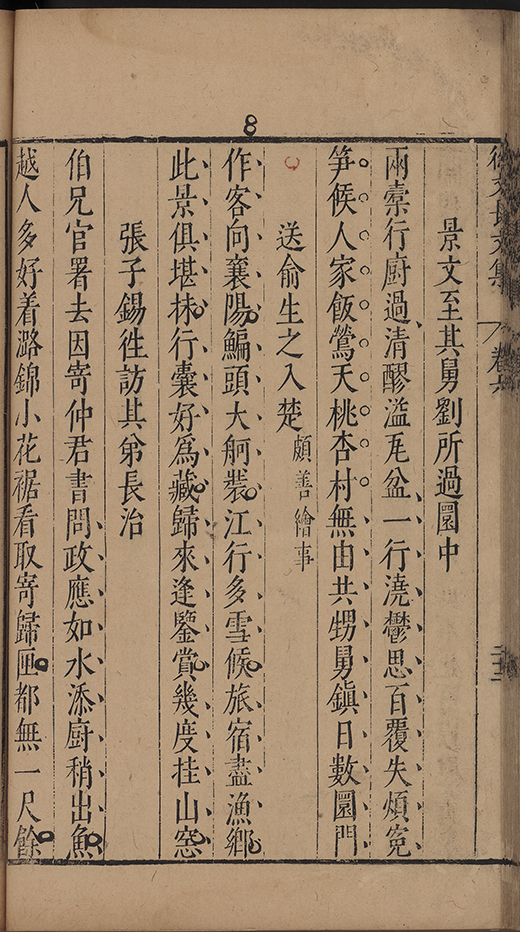 8
徐文長文集 卷六
景文至其舅劉所過園中
兩橐行厨過清醪滥瓦盆一行澆鬱思百覆失煩寃
笋候人家飯鶯天桃杏村無由共甥舅鎮日數園門
送俞生之入楚頗善繪事
作客向襄陽鯿頭大舸裝江行多雪候旅宿盡漁鄉
此景俱堪抹行囊好爲藏歸來逢鑒賞幾度挂山窓
張子錫徃訪其弟長治
伯兄官署去因寄仲君書問政應如水添厨稍出魚
越人多好着潞錦小花裾看取寄歸匣都無一尺餘